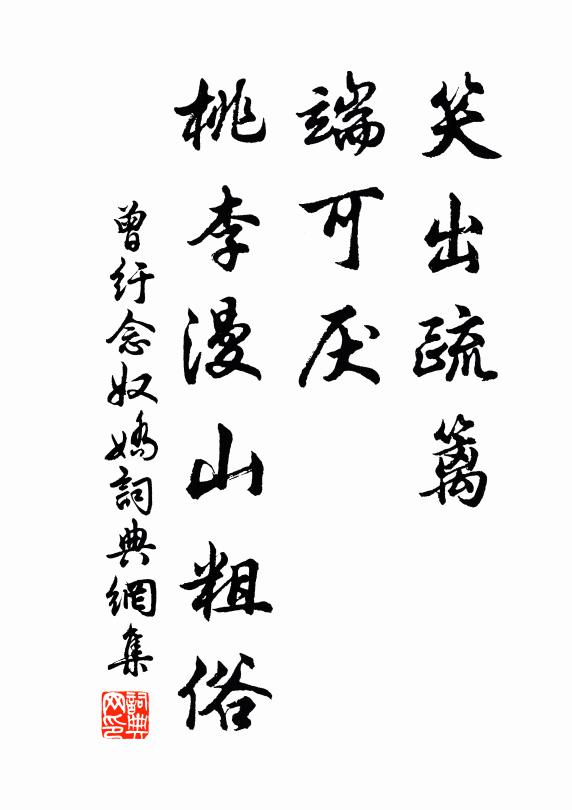 笑出疏篱
端可厌
桃李漫山粗俗
曾纡念奴娇詞典網集
詞典网印